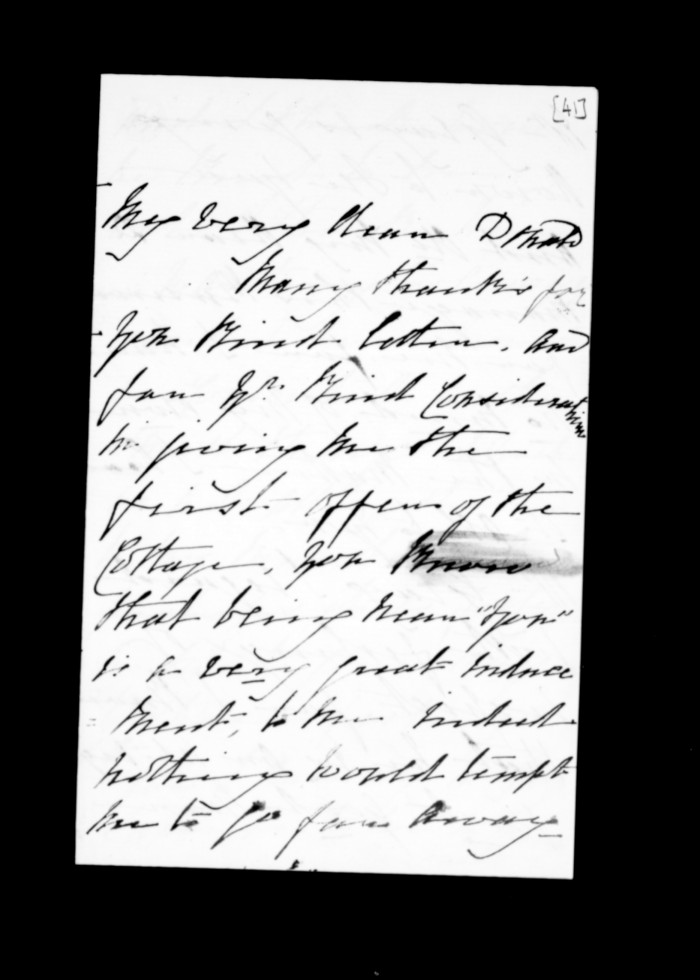 [41]
My very dear Donald
Many thanks for
your kind letter. And
for yr. kind Consideration
in giving me the
first offer of the
Cottage, you know
that being near "you"
is a very great induce
ment, to me indeed
nothing would tempt
me to go far away